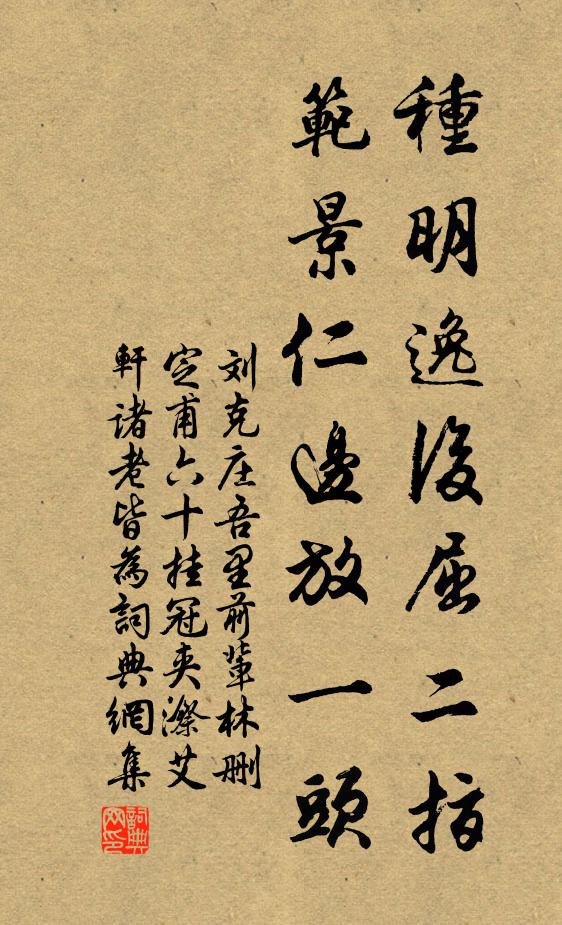 種明逸後屈二指
範景仁邊放一頭
刘克庄吾里前輩林刪
定甫六十挂冠夾漈艾
軒諸老皆為詞典網集
詞典网印